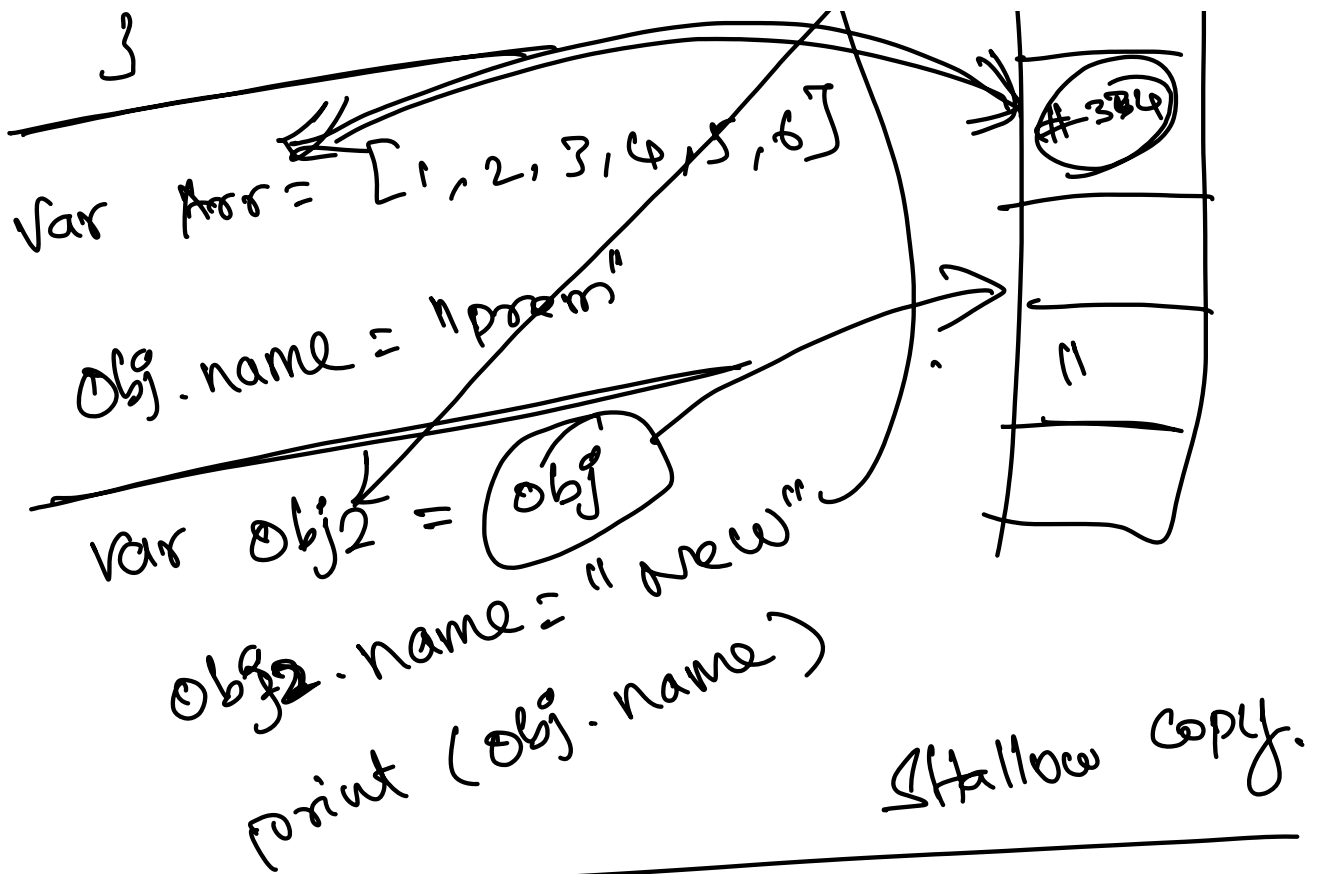 }
var Arr = [1, 2, 3, 4, 5, 6]
Obj.name = "prem"
var Obj2 = obj
obj2.name = "new"
print (obj.name)
"
SHallow copy.